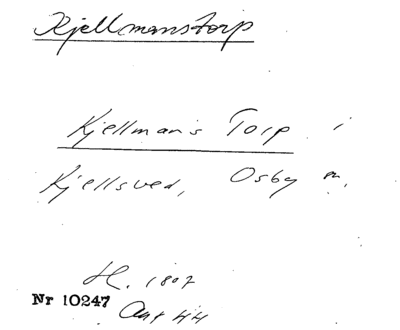 Kjellmanstorp
Kjellman's Torp i
Kjellsved, Osby sn.
H. 1807
Nr 10247
Ant 44